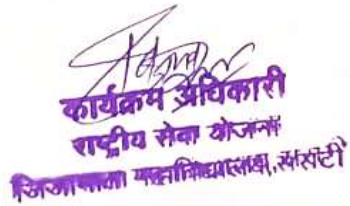 कार्यक्रम अधिकारी
राष्ट्रीय सेवा योजना
जिजामाता महाविद्यालय,